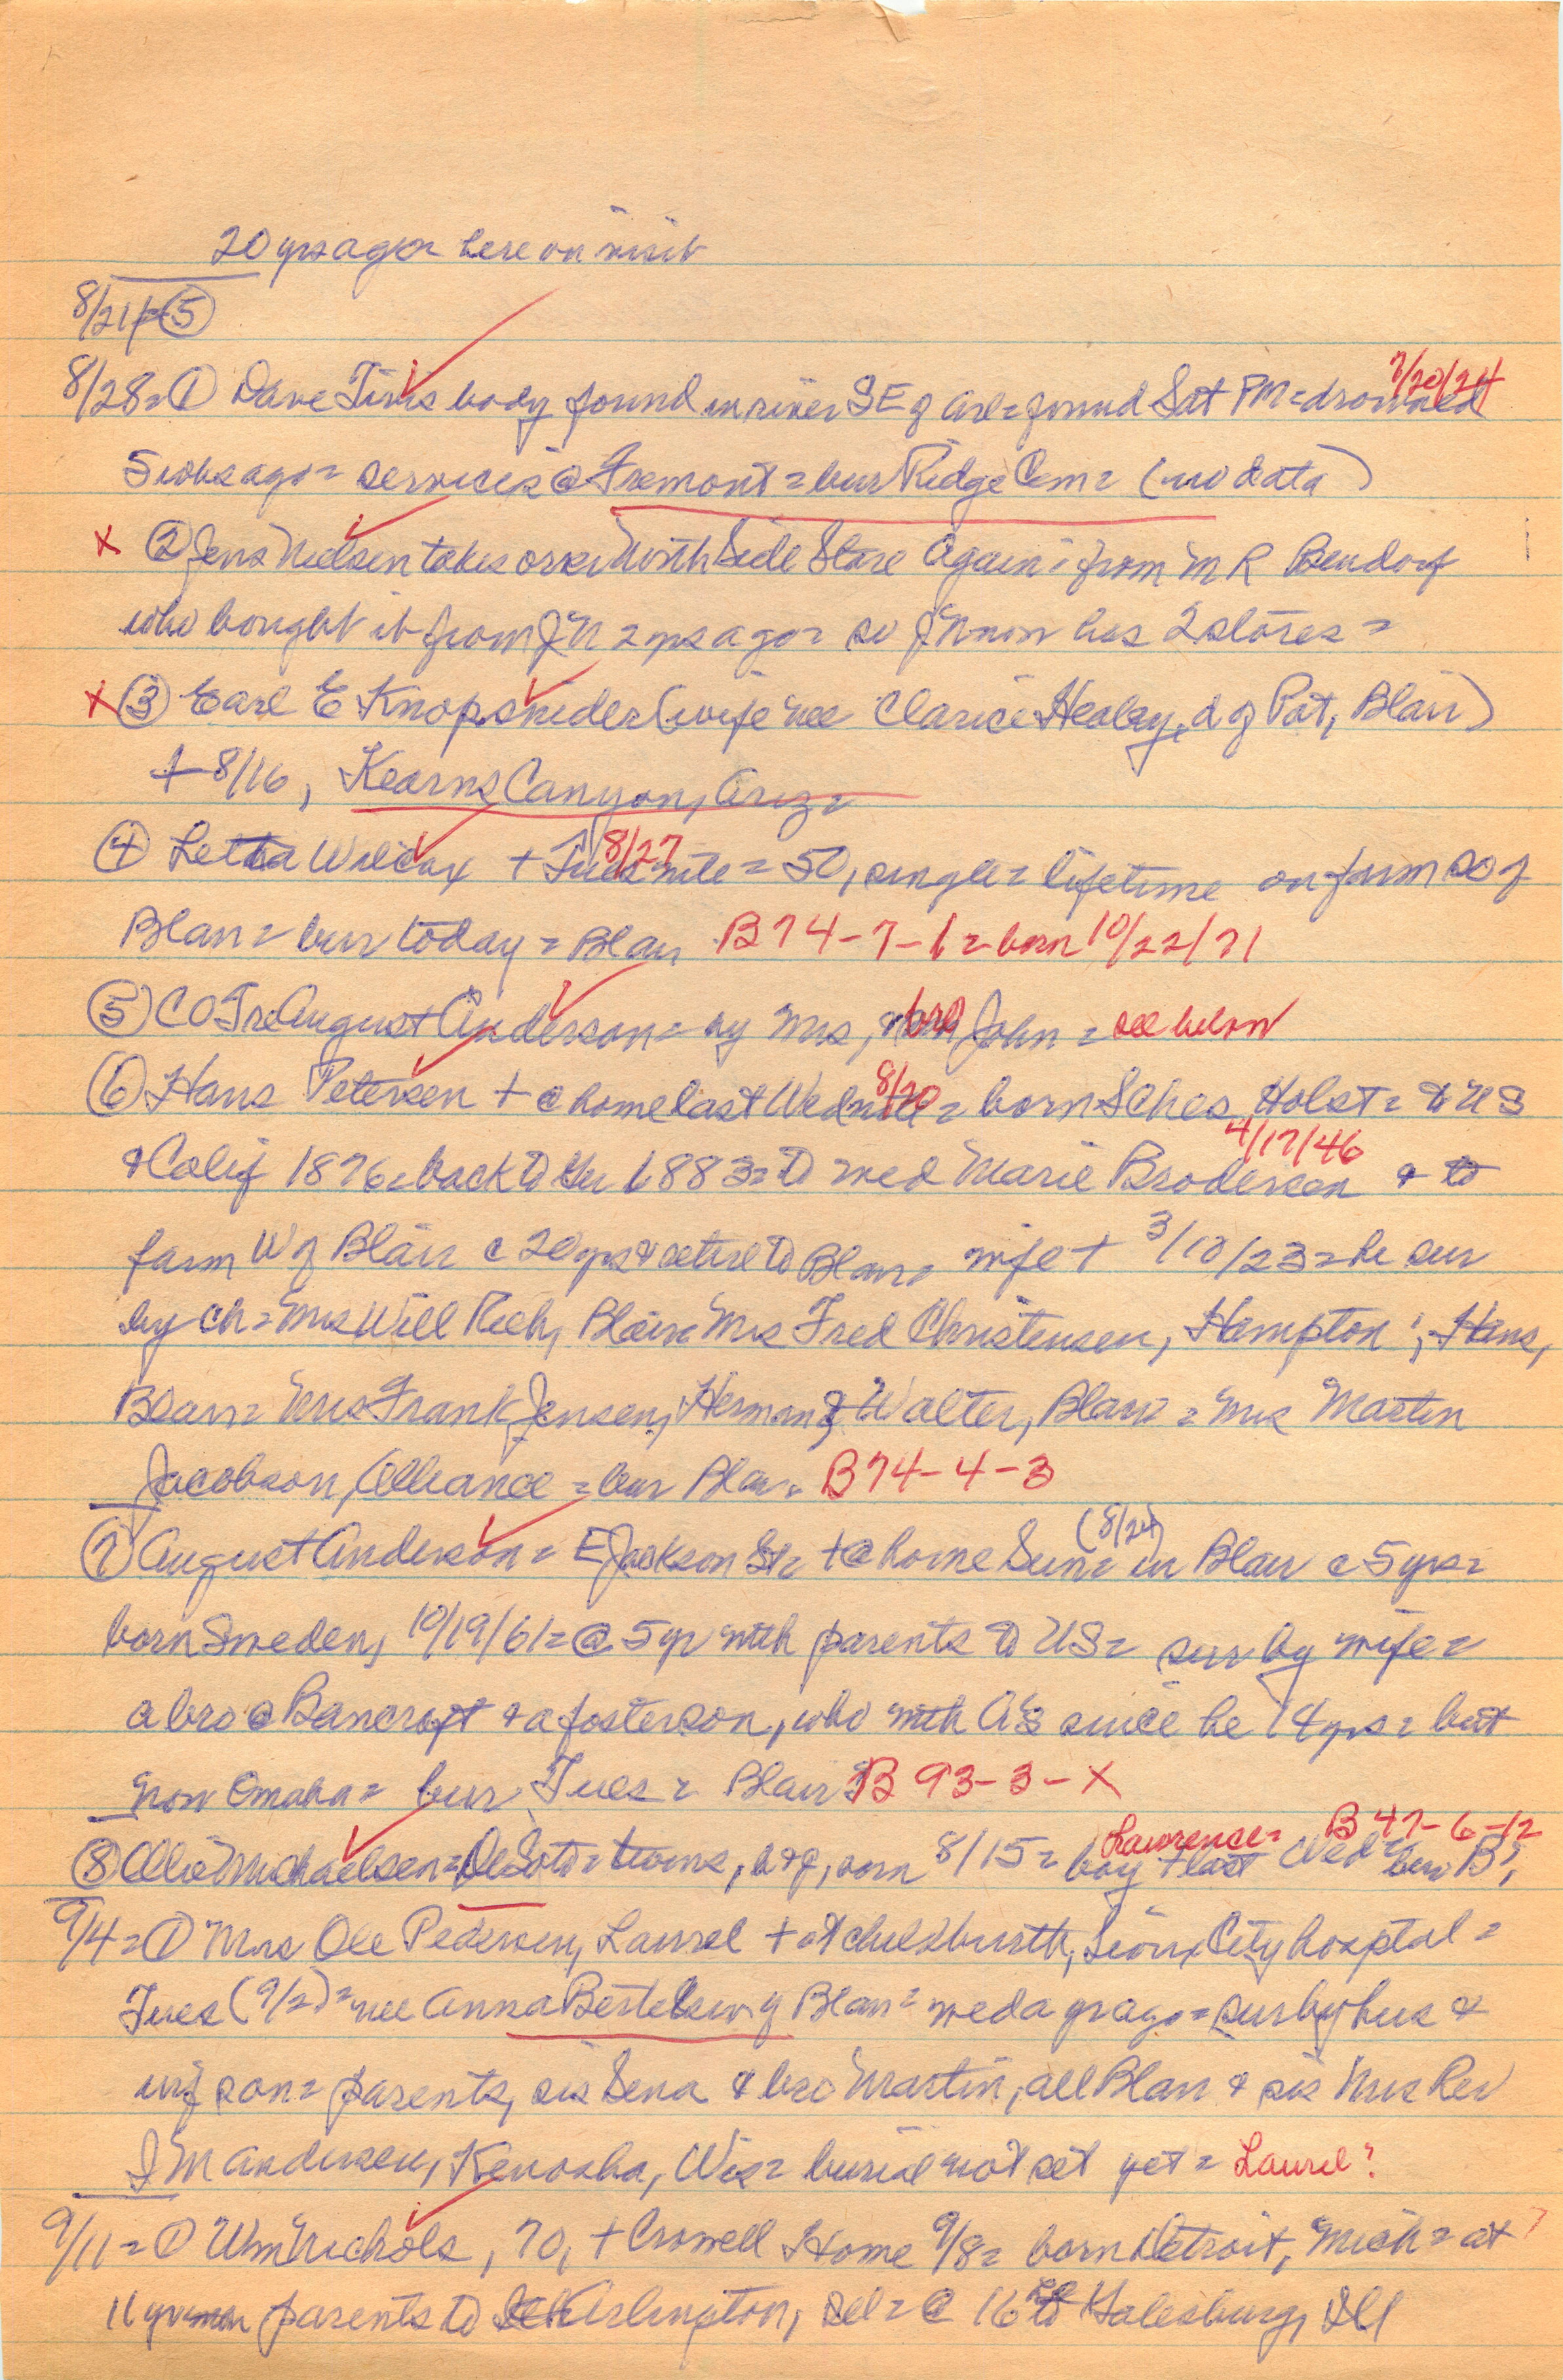 20 yrs ago = here on visit
8/21 = ⑤
8/28 = ① Dave Tims body found in river SE of Arl = found Sat PM = drowned 7/20/24
5 wks ago = services @ Fremont = bur Ridge Cem = (no data)
x ② Jens Nielsen takes over North Side Store again = from M R Bendorf
who bought it from JN 2 yrs ago = so JN now has 2 stores =
x ③ Earl E Knopsnider (wife nee Clarice Healey, d of Pat, Blair)
+ 8/16, Kearns Canyon, Ariz =
④ Letta Wilcox + Tues nite 8/27 = 50, single = lifetime on farm so of
Blair = bur today = Blair B 74-7-6 = born 10/22/71
⑤ C O T August Anderson = by Mrs, bro John = see below
⑥ Hans Petersen + @ home last Wed nite 8/20 = born Sches Holst = to US
& Calif 1876 = back to 1883 = to wed Marie Brodersen 4/17/46 & to
farm W of Blair c 20 yrs & retire to Blair = wife + 3/10/23 = he sur
by ch = Mrs Will Rich, Blair = Mrs Fred Christensen, Hampton; Hans,
Blair = Mrs Frank Jensen, Herman & Walter, Blair = Mrs Martin
Jacobson, Alliance = bur Blair = B 74-4-3
⑦ August Anderson = E Jackson St = + @ home Sun = (8/24) in Blair c 5 yrs =
born Sweden, 10/19/61 = @ 5 yr with parents to US = sur by wife =
a bro @ Bancroft & a foster son, who with A's since he 14 yrs = but
now Omaha = bur Tues = Blair B 93-3-X
⑧ Michaelsen = DeSoto = twins, b & g, born 8/15 = boy Lawrence = + last Wed = bur B; B 47-6-12
9/4 = ① Mrs Ole Pedersen, Laurel + at childbirth, Sioux City hosptal =
Tues (9/2) = nee Anna Bertelsen of Blair = wed a yr ago = sur by hus &
inf son = parents, sis Sena & bro Martin, all Blair & sis Mrs Rev
I M Andersen, Kenosha, Wis = burial not set yet = Laurel?
9/11 = ① Wm Nichols, 70, + Crowell Home 9/8 = born Detroit, Mich = at
11 yr parents to Arlington, = @ 16 to Galesburg, Ill